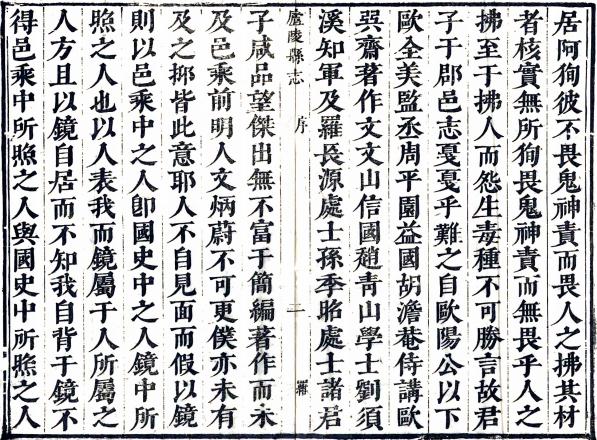 居阿狥彼不畏鬼神責而畏人之拂其材
者核實無所狥畏鬼神責而無畏乎人之
拂至于拂人而怨生毒種不可勝言故君
子于郡邑志戞戞乎難之自歐陽公以下
歐全美監丞周平園益國胡澹菴侍講歐
㢲齋著作文文山信國趙青山學士劉須
溪知軍及羅長源處士孫季昭處士諸君
廬陵縣志 序 二 羅
子咸品望傑出無不富于簡編著作而未
及邑乘前明人文炳蔚不可更僕亦未有
及之抑皆此意耶人不自見面而假以鏡
則以邑乘中之人卽國史中之人鏡中所
照之人也以人表我而鏡屬于人所屬之
人方且以鏡自居而不知我自背于鏡不
得邑乘中所照之人與國史中所照之人